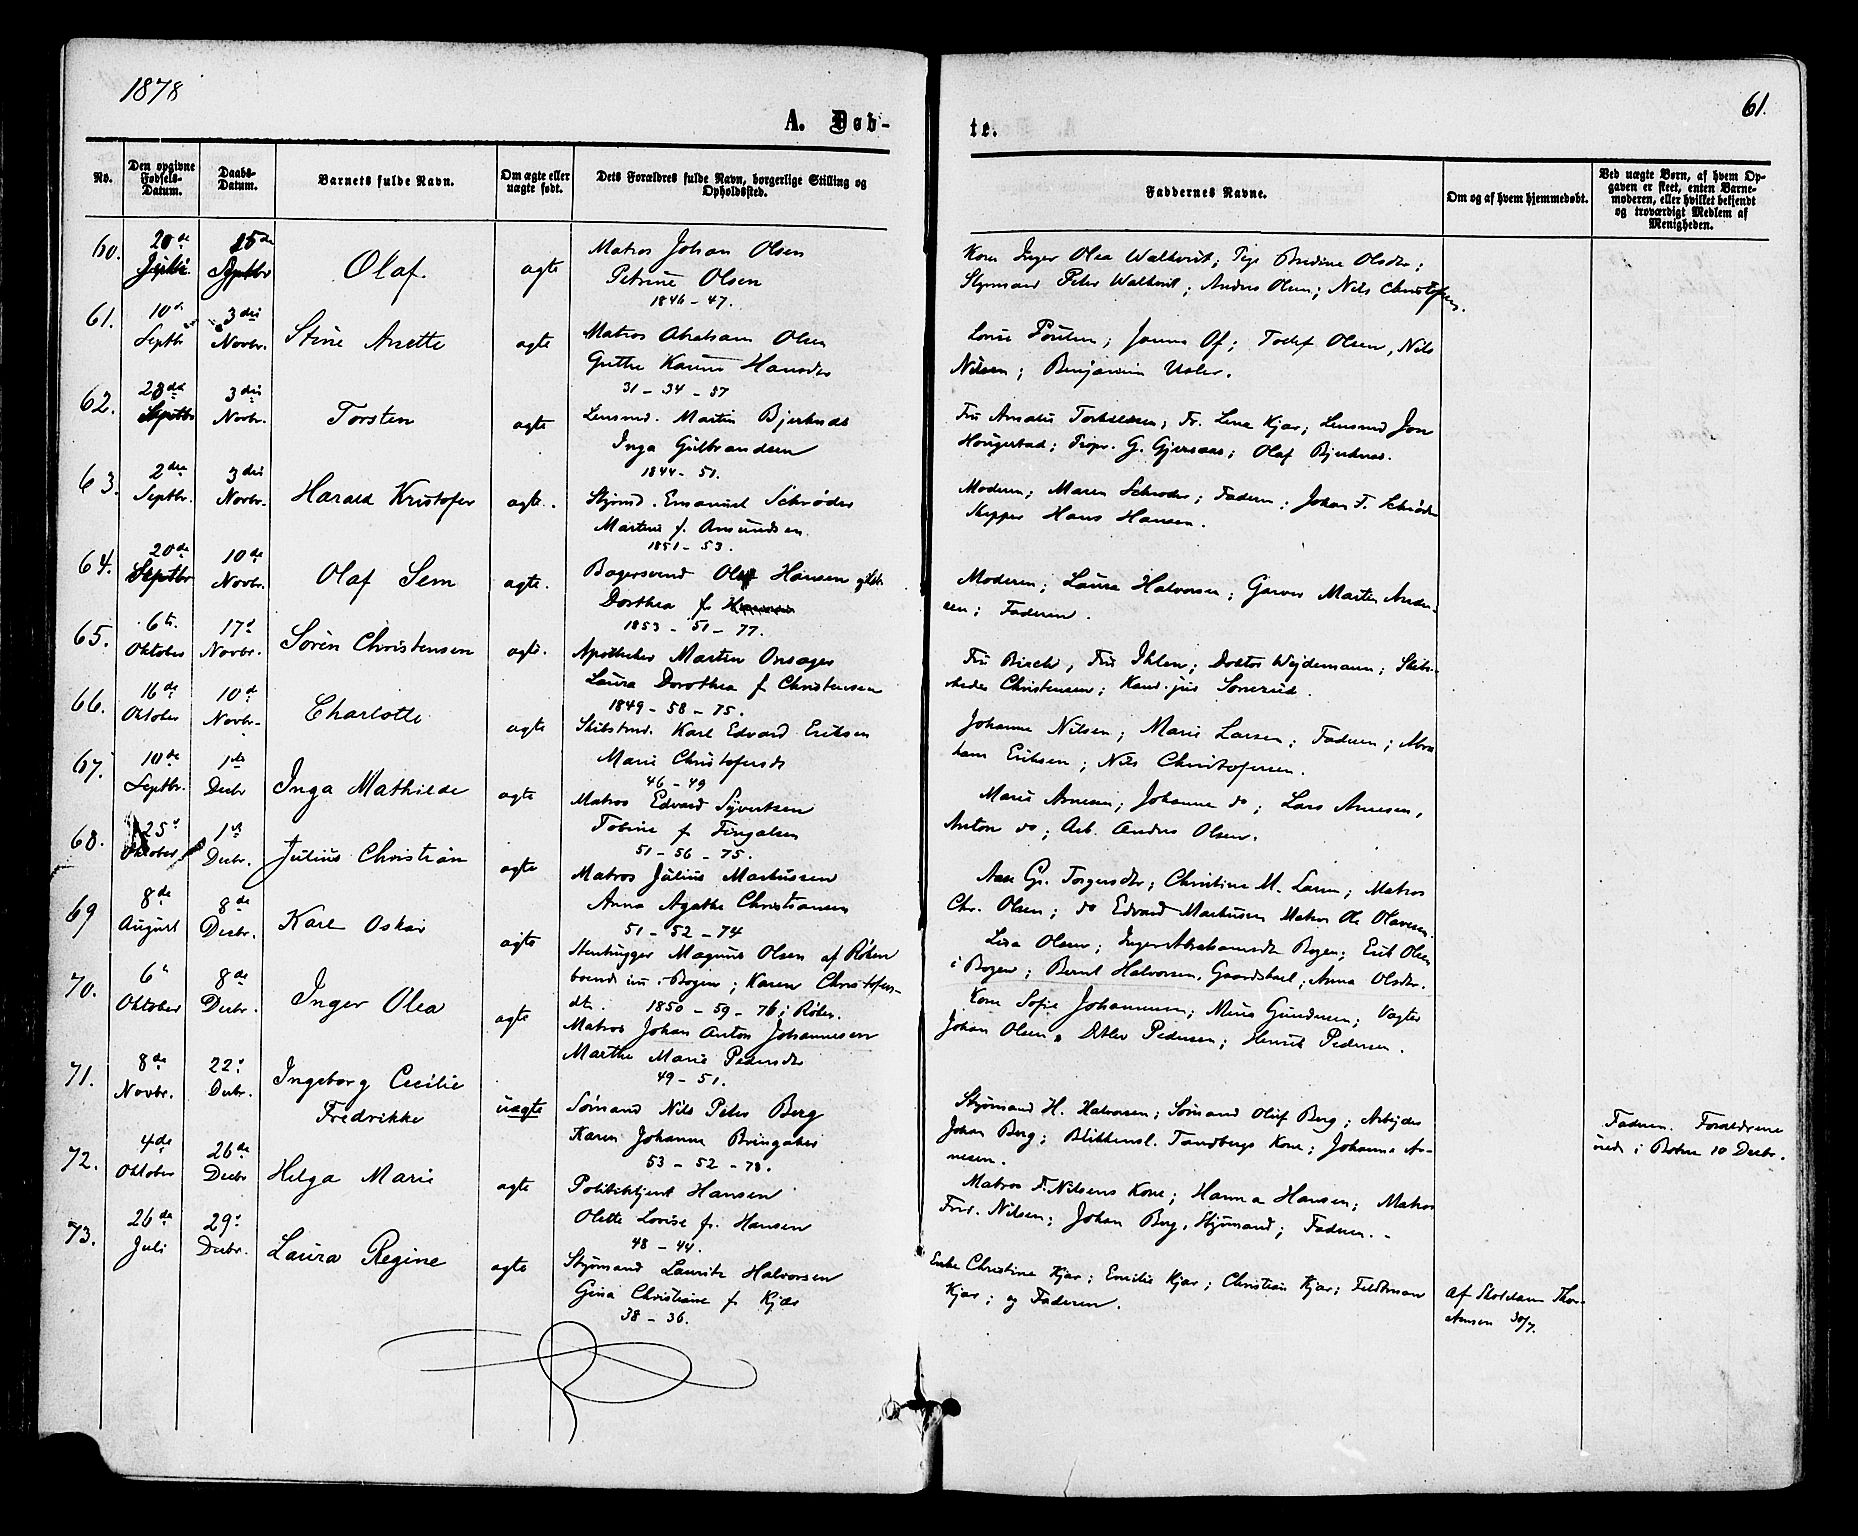 1878
61.
A. Døb-
te.
No.
Den opgivne Fødsels-Datum.
Daabs-Datum.
Barnets fulde Navn.
Om ægte eller uægte født.
Dets Forældres fulde Navn, borgerlige Stilling og Opholdssted.
Faddernes Navne.
Om og af hvem hjemmedøbt.
Ved uægte Børn, af hvem Opgaven er skeet, enten Barnemoderen, eller hvilket bekjendt og troværdigt Medlem af Menigheden.
60. 20de 15de Matros Johan Olsen
Olaf. ægte Petrine Olsen
1846 - 47.
Kone Inger Olea Walkvist; Pige Bredine Olsdtr;
Styrmand Peter Walkvist; Anders Olsen; Nils Christofersen.
61. 10de 3die Matros Abraham Olsen
Septbr Novbr. Stine Anette ægte Grethe Karine Hansdtr
31 - 34 - 57
Lovise Poulsen; Tollef Olsen, Nils
Nilsen; Benjamin
62. 28de 3die Lensmd. Martin Bjerknes
Septbr Novbr. Torsten ægte Inga Gulbrandsen
1844 - 51.
Fru Torkildsen; Fr. Lena Kjær; Lensmd Jon
Hougestad; Propr. G. Olaf Bjerknes.
63. 2den 3die Styrmd. Emanuel Schrøder
Septbr. Novbr. Harald Kristofer ægte. Martine f. Amundsen
1851 - 53.
Moderen; Maren Schrøder; Faderen; Johan F. Schrøder
Skipper Hans Hansen.
64. 20de 10de Bagersvend Olaf Hansen
Septbr Novbr. Olaf Sem ægte. Dorthea f.
1853 - 51 - 77.
Moderen; Laura Halvorsen; Garver Martin Ander-
sen; Faderen.
65. 6te 17de Apotheker Martin Onsager
Oktober Novbr. Sørén Christensen ægte. Laura Dorothea f Christensen
1849 - 58 - 75.
Fru Birch, Fru Ihlen; Doktor Wejdemann; Skibs-
rheder Christensen; Kand. jur Sonerud.
66. 16de 10de Skibstmd. Karl Edvard Eriksen
Oktober Novbr. Charlotte ægte Marie Christofersdt
46 - 49
Johanne Nilsen; Marie Larsen; Faderen; Abra
ham Eriksen; Nils Christofersen.
67. 10de 1ste Matros Edvard Syvertsen
Septbr. Decbr Inga Mathilde ægte Tobine f Fingalsen
51 - 56 - 75.
Marie Arnesen; Johanne do; Lars Arnesen,
Anton do; Arb. Anders Olsen.
68. 25de 1ste Matros Julius Markussen
Oktober Decbr. Julius Christian ægte Anna Agathe Christiansen
51 - 52 - 74
Gr. Torgersdtr; Christine M. Larsen; Matros
Chr. Olsen; do Edvard Markussen Matros Ole Olavesen.
69 8de 8de Stenhugger Magnus Olsen af Røken
August Decbr. Karl Oskar ægte boende i Bogen; Karen Christofers-
dt. 1850 - 59 - 76 i Røken.
Lisa Olsen; Inger Abrahamsdt Bogen; Erik Olsen
i Bogen; Bernt Halvorsen, Anna Olsdtr.
70. 6te 8de Matros Johan Anton Johannesen
Oktober Decbr. Inger Olea ægte Marthe Marie Pedersdtr
49 - 51.
Kone Sofie Johannesen; Mina Gundersen; Vagter
Johan Olsen, Detlev Pedersen; Henrik Pedersen.
71. 8de 22de Sømand Nils Peter Berg
Novbr. Decbr. Ingeborg Cecilie Fredrikke uægte Karen Johanne Bringaker
53 - 52 - 78.
Styrmand H. Halvorsen; Sømand Oluf Berg; Arbejder
Johan Berg; Blikkensl. Tandbergs Kone; Johanne Ar-
nesen.
Faderen. Forældrene
viede i Botne 10 Decbr.
72. 4de 26de Politibtjent Hansen
Oktober Decbr Helga Marie ægte Olette Lovise fr. Hansen
48 - 44.
Matros F. Nilsens Kone; Hanna Hansen; Matros
Fred. Nilsen; Johan Berg, Styrmand; Faderen.
73. 26de 29de Styrmand Lauritz Halvorsen
Juli Decbr. Laura Regine ægte Gina Christiane f. Kjær
38 - 36.
Enke Christine Kjær; Emilie Kjær; Christian Kjær; Feldtmann
Kjær; og Faderen.
af Skolelærer Thor-
30/7.